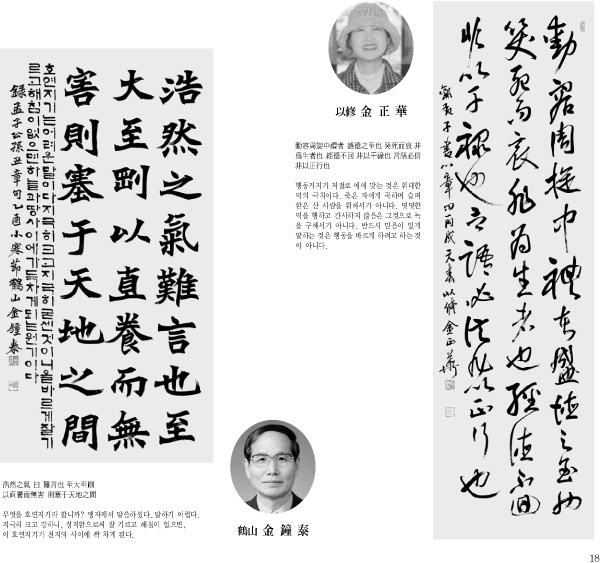 浩然之氣難言也至
大至剛以直養而無
害則塞于天地之間
호연지기는어려운말이다지극히크고지극히굳센것이니올바르게잘기
르고해침이없으면하늘과땅사이에가득차게되는원기이다
錄孟子公孫丑章句 乙酉小寒節鶴山金鐘泰
浩然之氣 曰 難言也 至大至剛
以直養而無害 則塞于天地之間
무엇을 호연지기라 합니까? 맹자께서 말씀하셨다. 말하기 어렵다.
지극히 크고 강하니, 정직함으로써 잘 기르고 해침이 없으면,
이 호연지기가 천지의 사이에 꽉 차게 된다.
鶴山 金鐘泰
以修 金正華
動容周旋中禮者 盛德之至也 哭死而哀 非
爲生者也 經德不回 非以干祿也 言語必信
非以正行也
행동거지가 저절로 예에 맞는 것은 위대한
덕의 극치이다. 죽은 자에게 곡하며 슬퍼
함은 산 사람을 위해서가 아니다. 떳떳한
덕을 행하고 간사하지 않음은 그것으로 녹
을 구해서가 아니다. 반드시 믿음이 있게
말하는 것은 행동을 바르게 하려고 하는것
이 아니다.
動容周旋中禮者盛德之至也
哭死而哀非爲生者也經德不回
非以干祿也言語必信非以正行也
丙戌元春以修金正華
18